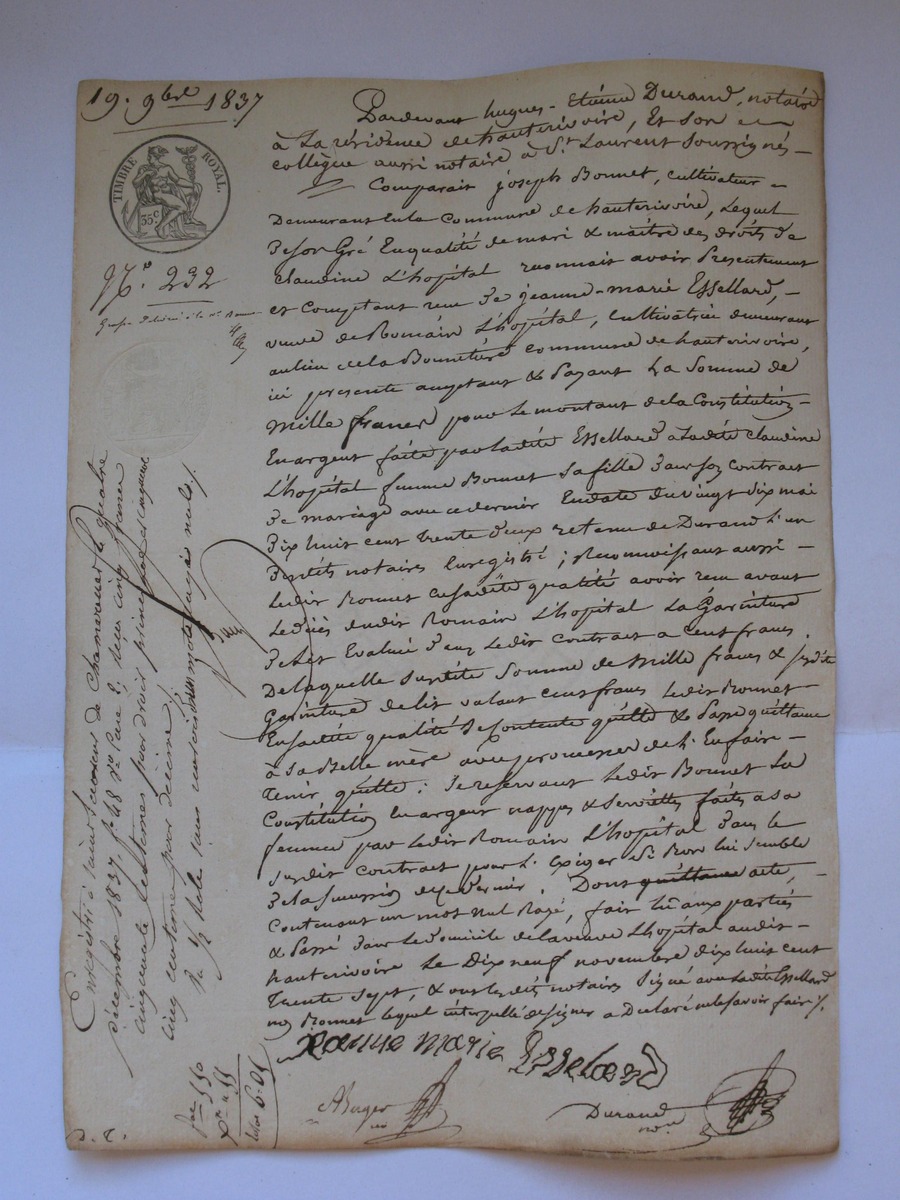 19. 9bre 1837
TIMBRE ROYAL.
35 c
N.° 232
Pardevant hugues-Etiéne Durand, notaire
à La résidence de hauterivoire, Et son
collègue aussi notaire à St Laurent Soussignés
Comparait joseph Bonnet, cultivateur
Demeurant En la Commune de hauterivoire, Lequel
De son Gré En qualité de mari & maître des droits de
Claudine L'hopital reconnait avoir Presentement
et Comptant reçu de jeanne-marie Essellard,
veuve de Romain L'hopital, cultivatrice demeurant
au lieu de la commune de hauterivoire,
ici presente acceptant & Payant La Somme de
mille francs pour Le montant de la Constitution
En argent faite par Ladite Essellard à Ladite Claudine
L'hopital femme Bonnet Sa fille dans son contract
de mariage avec ce dernier En date du vingt six mai
Dix huit cent trente deux retenu de Durand L'un
Desdits notaires Enregistré ; Reconnoissant aussi
Ledit Bonnet en Sadite qualité avoir reçu avant
Le décès dudit Romain L'hopital La Garniture
De Lit Evalué dans Ledit Contract a Cent francs.
De laquelle susdite Somme de Mille francs & susdite
Garniture de lit valant Cent francs Ledit Bonnet
En sadite qualité Se Contente quitte & Passe quittance
à Sa Belle mère avec promesse de L'En faire
Tenir quitte ; Se reservant Ledit Bonnet La
Constitution En argent nappes & Serviettes faites a sa
femme par Ledit Romain L'hopital dans Le
susdit Contract pour L'Exiger Si Bon lui Semble
De La Succession de ce dernier. Dont quittance acte,
Contenant un mot nul Rayé, fait lu aux parties
& Passé dans Le domicile de la veuve L'hopital audit
hauterivoire Le Dix neuf novembre Dix huit cent
Trente Sept, & ont Lesdits notaires Signé avec Ladite Essellard
non Bonnet Lequel interpellé de signer a Declaré ne le Savoir faire /.
Janne marie Esselard
Durand
nore
Enregistré à Saint Laurent de Chamousset le quatre
décembre 1837. f° 48 vo Case 2; reçu cinq francs
cinquante centimes pour droit principal et cinquante
cinq centimes pour décime;
5 50
55
6. 05
D. C.